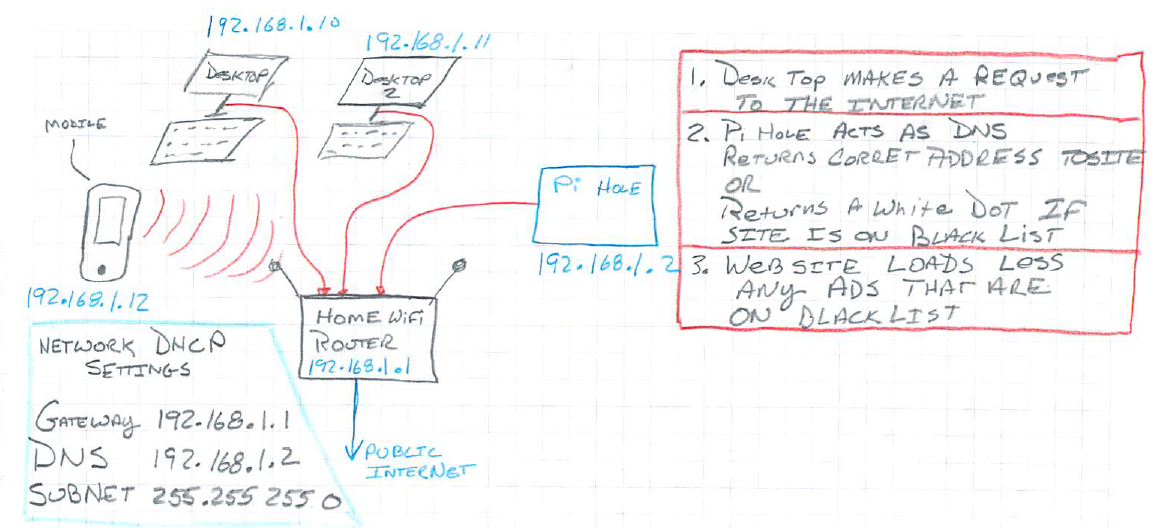 192.168.1.10
192.168.1.11
DESKTOP
DESKTOP
2
MOBILE
192.168.1.12
Pi HOLE
192.168.1.2
HOME WiFi
ROUTER
192.168.1.1
PUBLIC
INTERNET
NETWORK DHCP
SETTINGS
GATEWAY 192.168.1.1
DNS 192.168.1.2
SUBNET 255.255 255.0
1. Desk Top MAKES A REQUEST
TO THE INTERNET
2. Pi HOLE ACTS AS DNS
RETURNS CORRET ADDRESS TO SITE
OR
Returns A White DOT IF
SITE IS ON BLACK LIST
3. WEBSITE LOADS LESS
ANY ADS THAT ARE
ON BLACKLIST